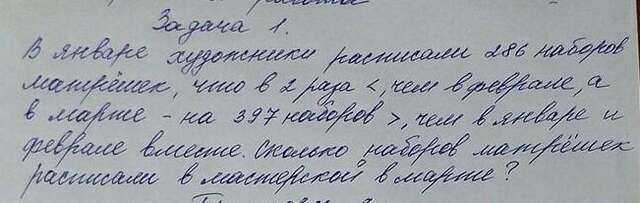 Задача 1.
В январе художники расписали 286 наборов
матрёшек, что в 2 раза <, чем в феврале, а
в марте - на 397 наборов >, чем в январе и
феврале вместе. Сколько наборов матрёшек
расписали в мастерской в марте?